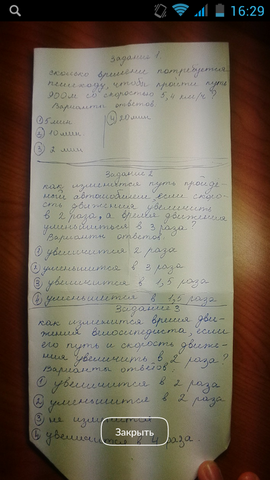 16:29
Задание 1.
сколько времени потребуется
пешеходу, чтобы пройти путь
900м со скоростью 5,4 км/ч?
Варианты ответов.
① 5 мин ④ 20 мин
② 10 мин.
③ 2 мин
Задание 2
как изменится путь пройде-
ный автомобилем, если скоро-
сть движения увеличить
в 2 раза, а время движения
уменьшиться в 3 раза?
Варианты ответов.
① увеличится 2 раза
② уменьшится в 3 раза
③ увеличится в 1,5 раза
④ уменьшается в 1,5 раза
Задание 3
как изменится время дви-
жения велосипедиста, если
его путь и скорость движе-
ния увеличить в 2 раза?
Варианты ответов.
① увеличиться в 2 раза
② уменьшиться в 2 раза
③ не изменится
④ увеличится в 4 раза.
Закрыть